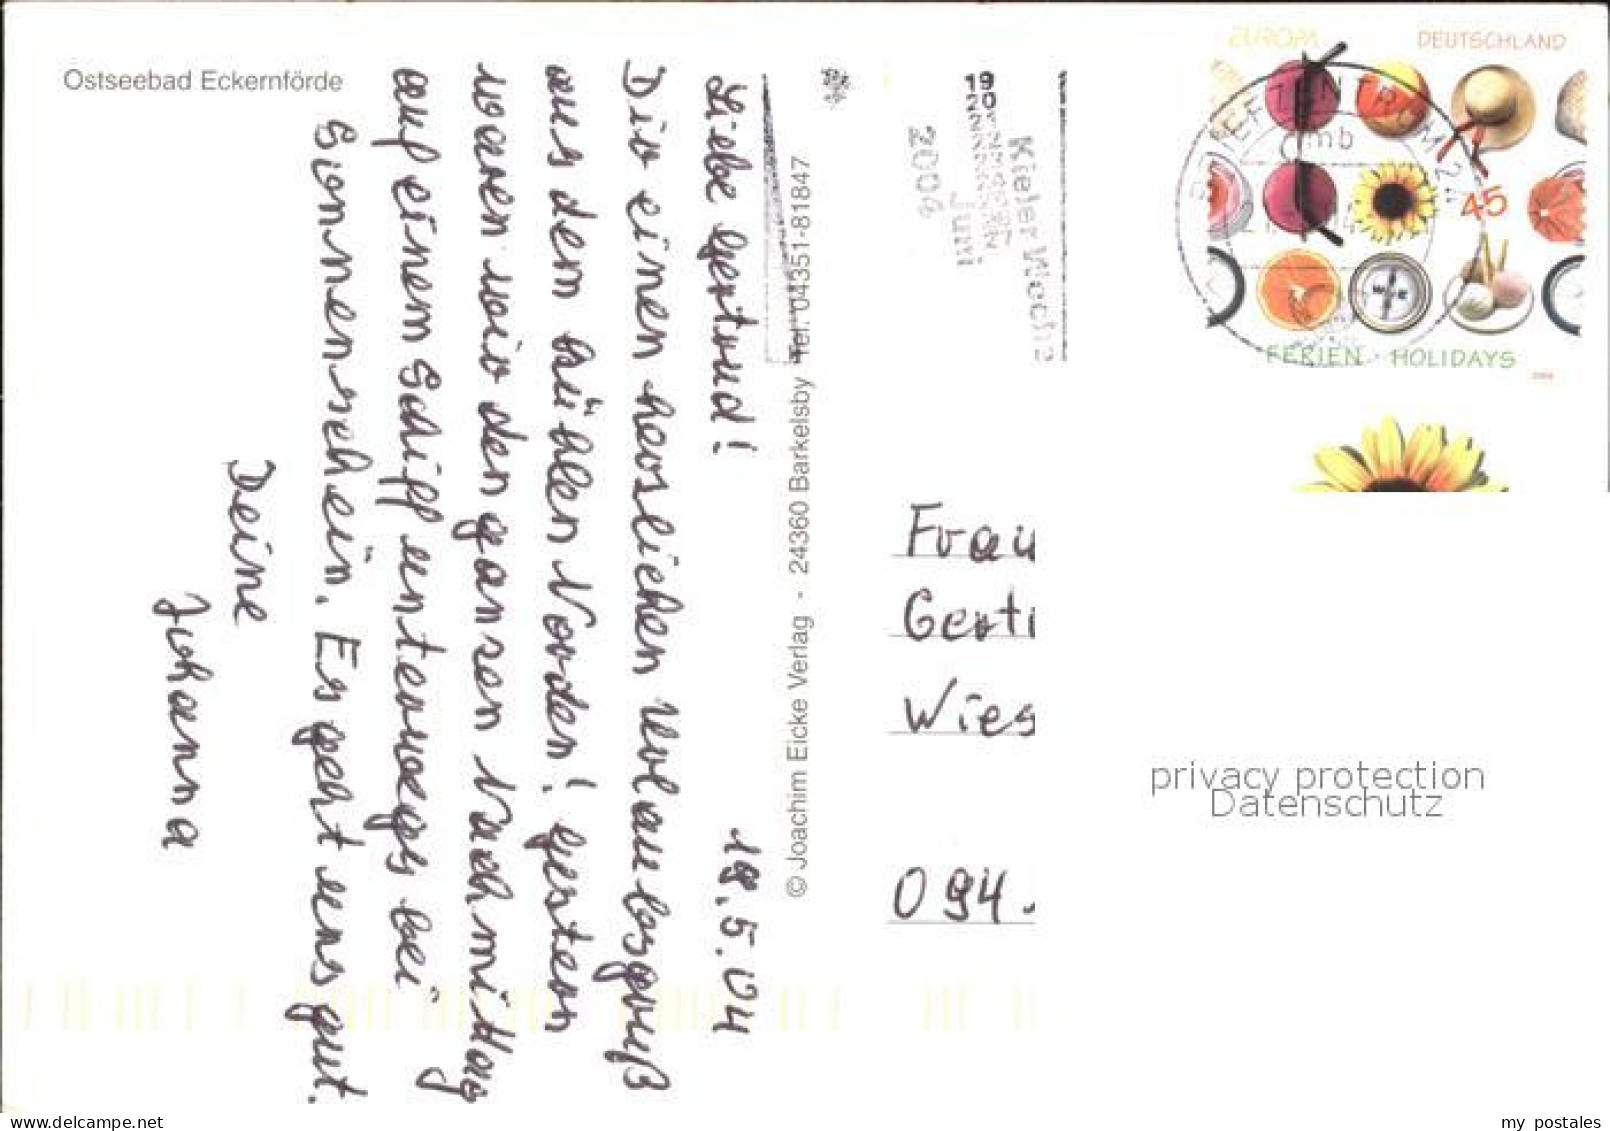 Ostseebad Eckernförde
Liebe Gertrud!
19.5.04
Dir einen herzlichen Urlaubsgruß
aus dem kühlen Norden! Gestern
waren wir den ganzen Nachmittag
auf einem Schiff unterwegs bei
Sonnenschein. Es geht uns gut.
Deine
Johanna
© Joachim Eicke Verlag - 24360 Barkelsby Tel. 04351-81847
19
20
Kieler Woche
Juni
2004
EUROPA
DEUTSCHLAND
BRIEFZENTRUM 24
mb
45
FERIEN HOLIDAYS
2004
Frau
Gert
Wies
094
privacy protection
Datenschutz
delcampe.net
my_postales